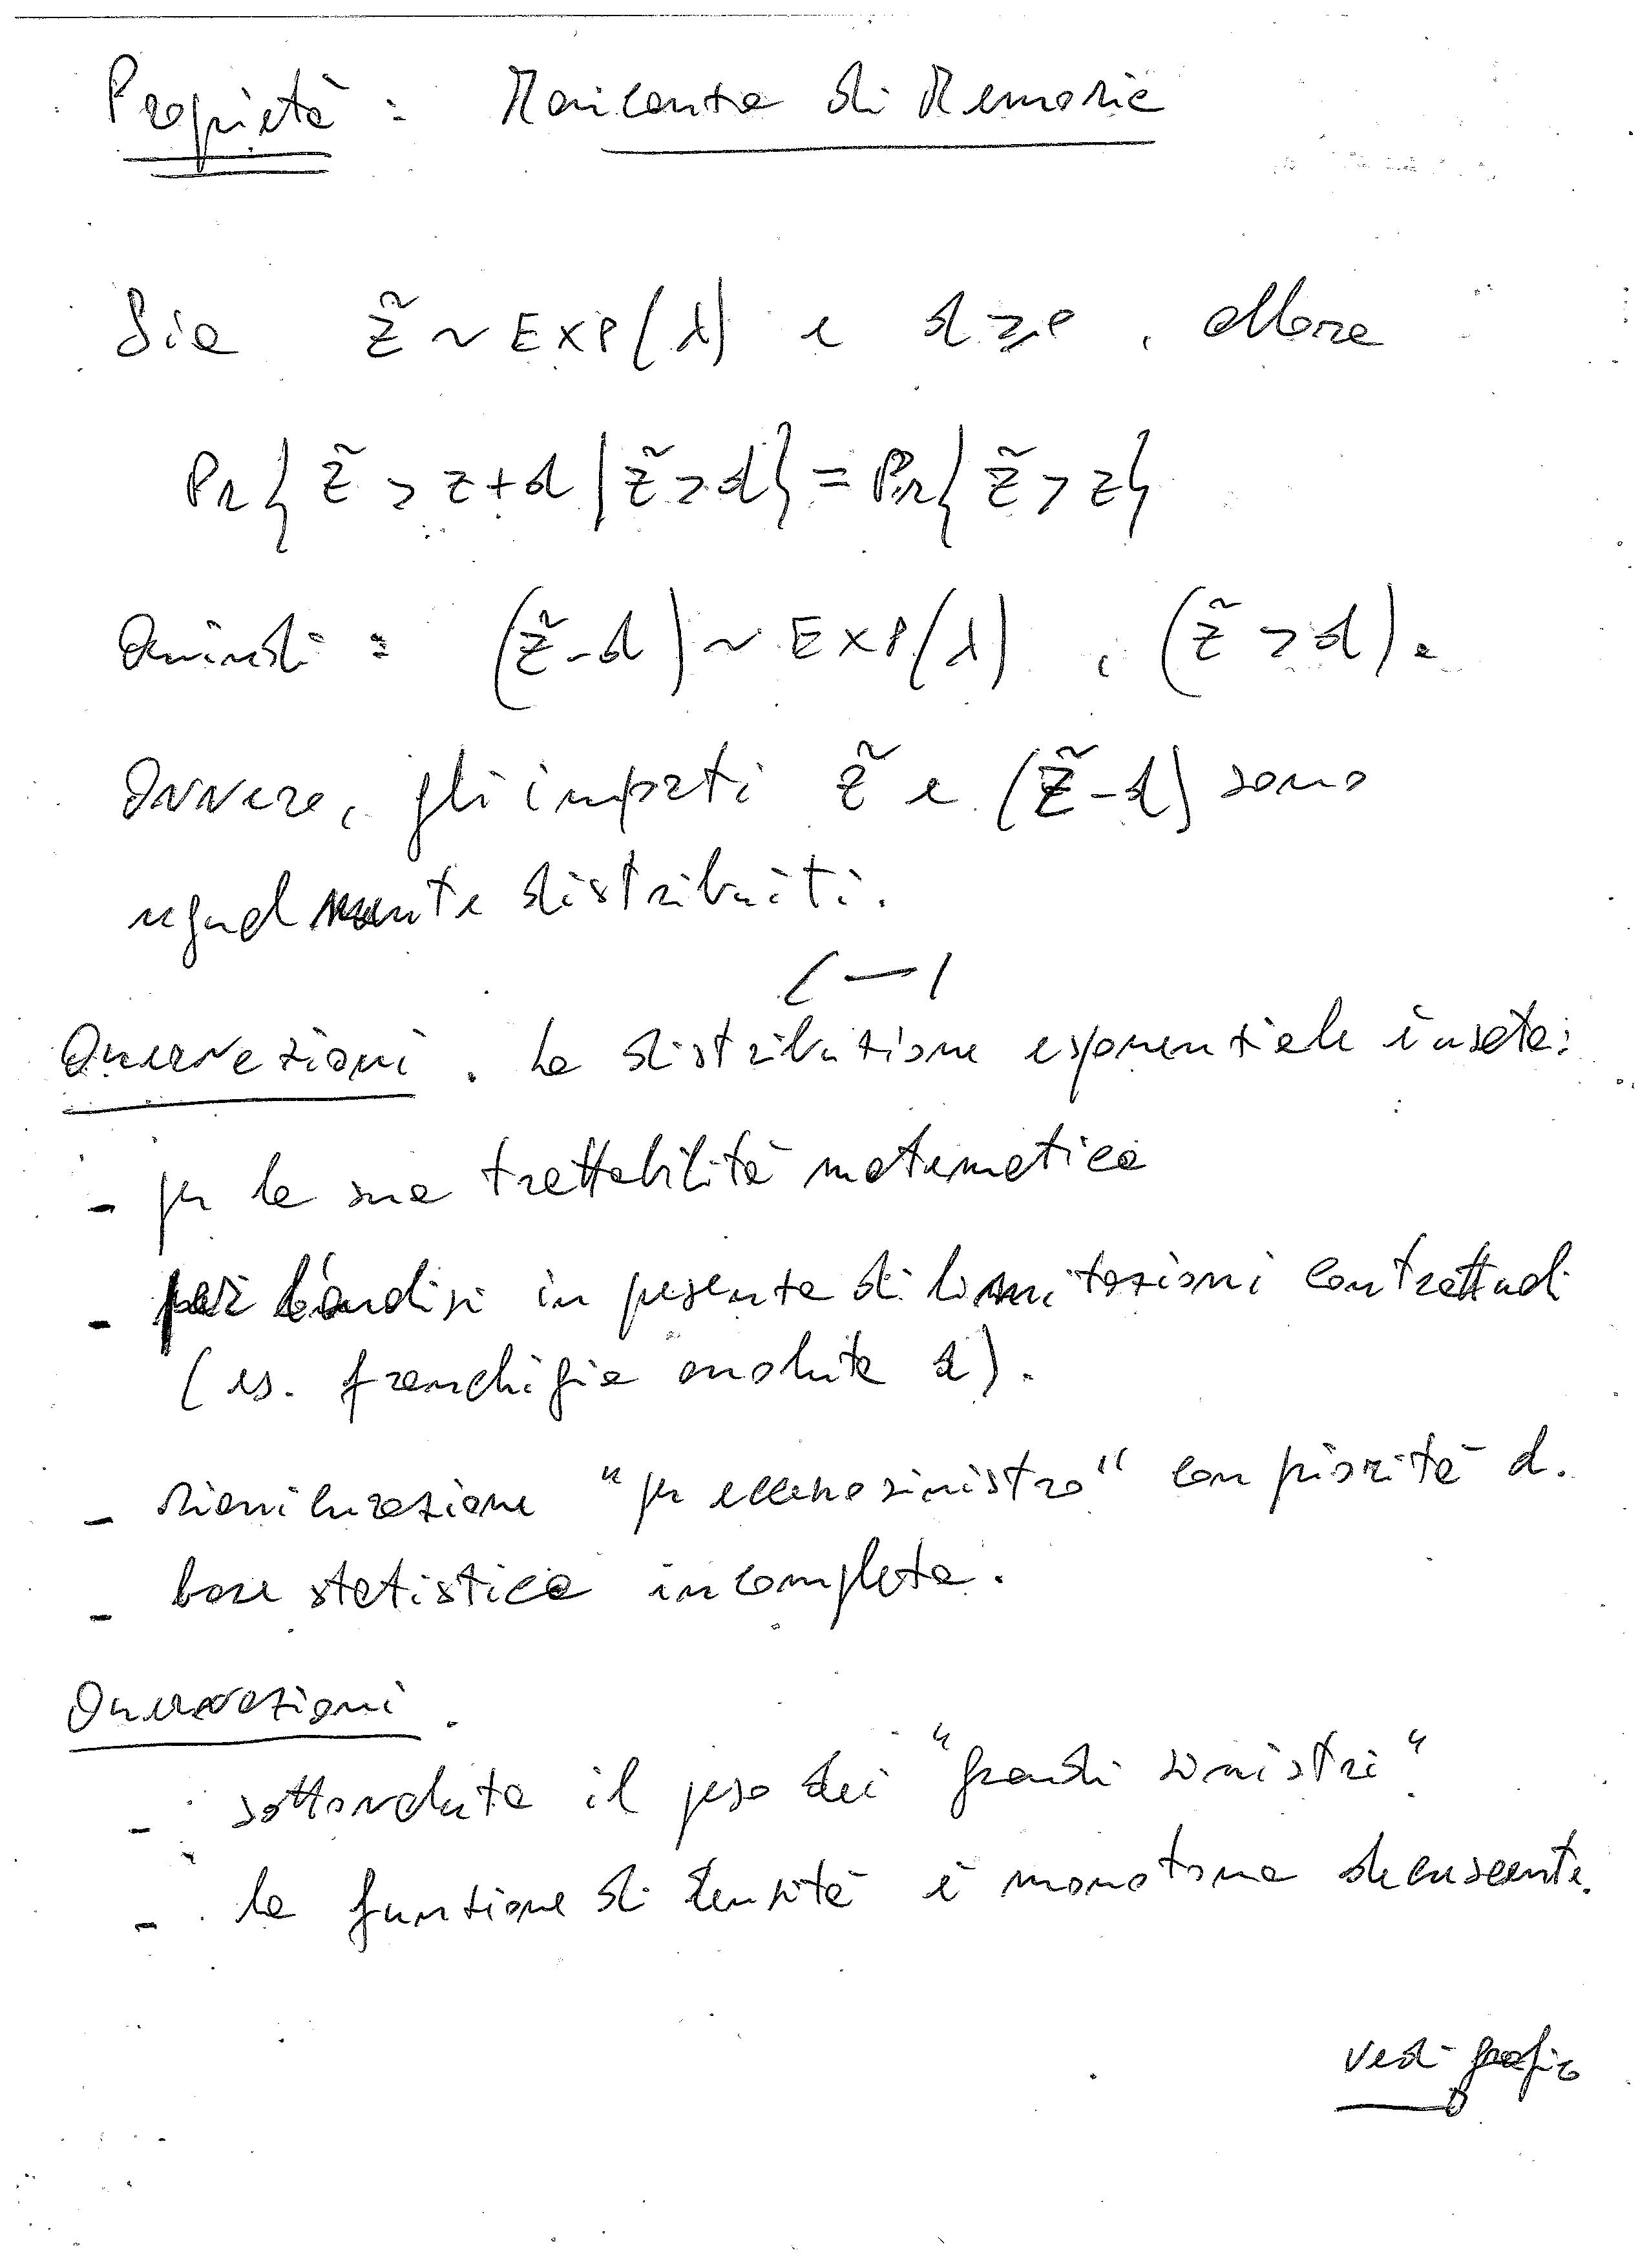 Proprietà : Mancanza di Memoria
Sia z̃ ~ EXP(λ) e d ≥ 0, allora
Pr{ z̃ > z+d | z̃ > d} = Pr{ z̃ > z}
Quindi : (z̃-d) ~ EXP(λ) , (z̃ > d).
Ovvero, gli importi z̃ e (z̃-d) sono
ugualmente distribuiti.
(—)
Osservazioni. La distribuzione esponenziale è usata:
- per la sua trattabilità matematica
- per l'analisi in presenza di limitazioni contrattuali
(es. franchigia assoluta d).
- riassicurazione "per eccesso sinistro" con priorità d.
- base statistica incompleta.
Osservazioni.
- sottovaluta il peso dei "grandi sinistri".
- la funzione di densità è monotona decrescente.
vedi grafico